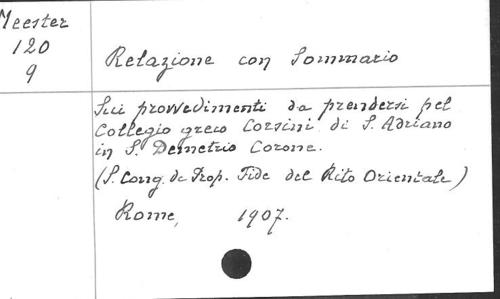 Meester
120
9
Relazione con Sommario
Sui provvedimenti da prendersi pel
Collegio greco Corsini di S. Adriano
in S. Demetrio Corone.
(S. Cong. de Prop. Fide del Rito Orientale)
Rome, 1907.